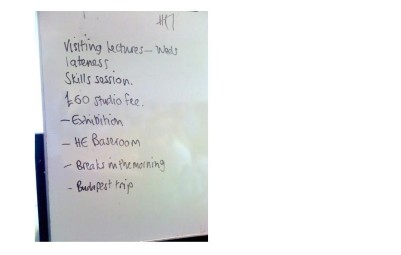 Visiting lectures –
lateness
Skills session.
£60 studio fee.
– Exhibition
– HE Baseroom
– Breaks in the morning
– Budapest trip